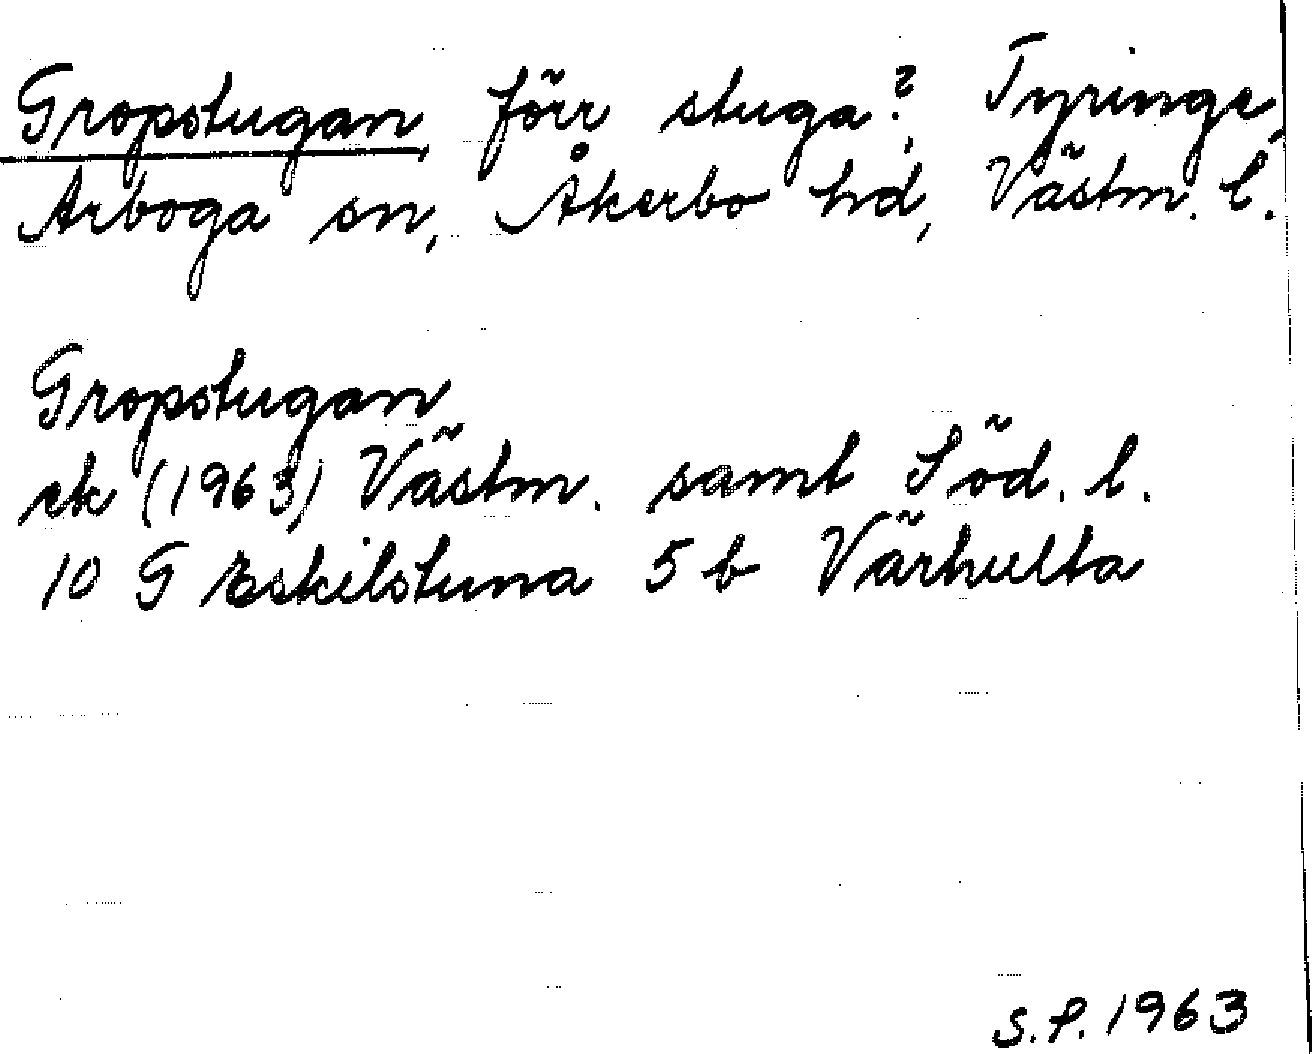 Gropstugan, förr stuga?, Tyringe,
Arboga sn, Åkerbo hd, Västm. l.
Gropstugan
ek (1963) Västm. samt Söd. l.
10 G Eskilstuna 5 b Värhulta
S.P. 1963